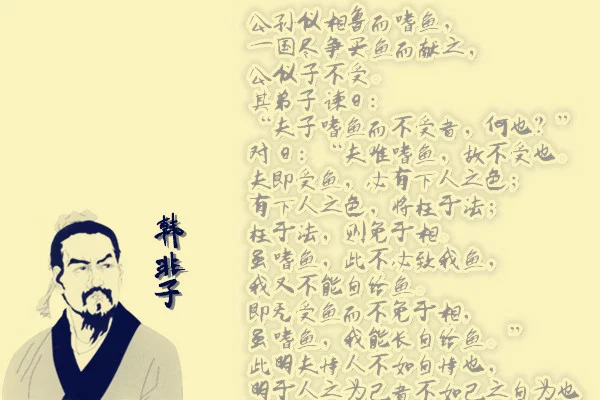 公孙仪相鲁而嗜鱼，
一国尽争买鱼而献之，
公仪子不受。
其弟子谏曰：
“夫子嗜鱼而不受者，何也？”
对曰：“夫唯嗜鱼，故不受也。
夫即受鱼，必有下人之色；
有下人之色，将枉于法；
枉于法，则免于相
虽嗜鱼，此不必致我鱼，
我又不能自给鱼。
即无受鱼而不免于相，
虽嗜鱼，我能长自给鱼。”
此明夫恃人不如自恃也，
明于人之为己者不如己之自为也
韩非子